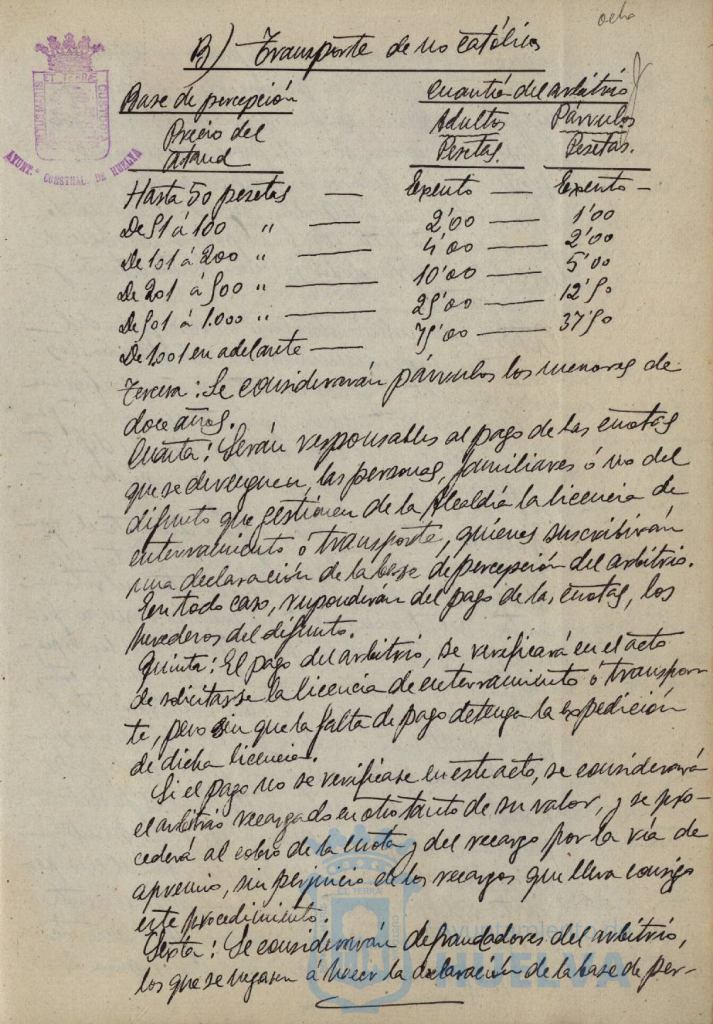 ocho
B) Transporte de no católicos
Base de percepción Cuantía del arbitrio
Precio del Adultos Párvulos
Ataud Pesetas. Pesetas.
Hasta 50 pesetas — Exento — Exento —
De 51 á 100 " — 2'00 — 1'00
De 101 á 200 " — 4'00 — 2'00
De 201 á 500 " — 10'00 — 5'00
De 501 á 1.000 " — 25'00 — 12'50
De 1001 en adelante — 75'00 — 37'50
Tercera: Se considerarán párvulos los menores de
doce años.
Cuarta: Serán responsables al pago de las cuotas
que se devenguen, las personas, familiares ó no del
difunto que gestionen de la Alcaldía la licencia de
enterramiento ó transporte, quienes suscribirán
una declaración de la base de percepción del arbitrio.
En todo caso, responderán del pago de las cuotas, los
herederos del difunto.
Quinta: El pago del arbitrio, se verificará en el acto
de solicitarse la licencia de enterramiento ó transpor-
te, pero sin que la falta de pago detenga la expedición
de dicha licencia.
Si el pago no se verificase en este acto, se considerará
el arbitrio recargado en otro tanto de su valor, y se pro-
cederá al cobro de la cuota y del recargo por la vía de
apremio, sin perjuicio de los recargos que lleva consigo
este procedimiento.
Sexta: Se considerarán defraudadores del arbitrio,
los que se negasen á hacer la declaración de la base de per-
AYUNT.º CONSTNAL. DE HUELVA
HUELVA